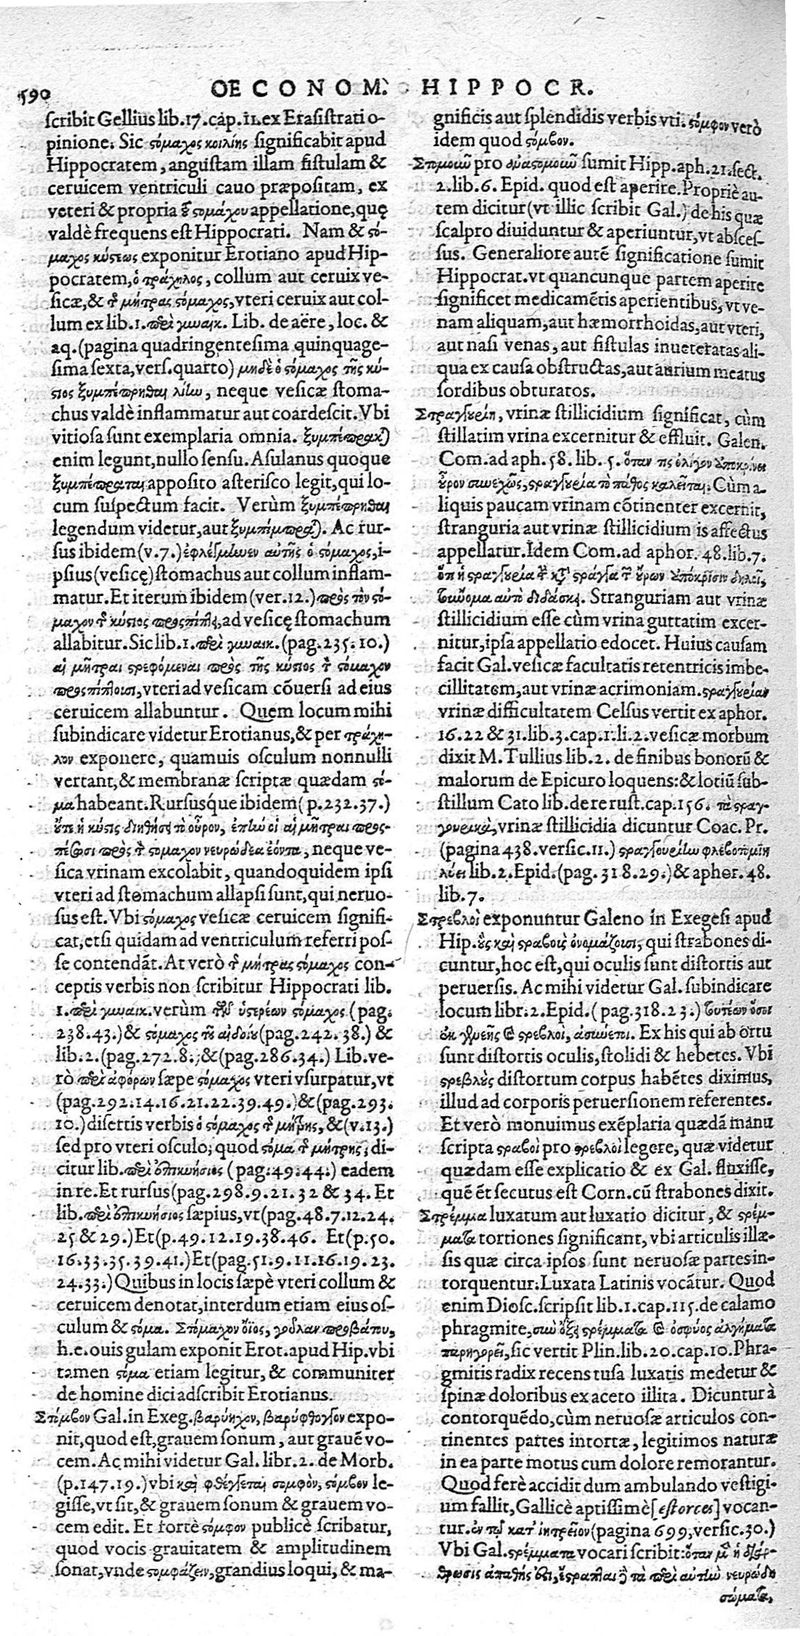 590
OECONOM. HIPPOCR.
scribit Gellius lib.17.cap.11.ex Erasistrati o-
pinione. Sic στόμαχος κοιλίης significabit apud
Hippocratem, angustam illam fistulam &
ceruicem ventriculi cauo præpositam, ex
veteri & propria τοῦ στομάχου appellatione, quę
valdè frequens est Hippocrati. Nam & στό-
μαχος κύστεως exponitur Erotiano apud Hip-
pocratem, ὁ τράχηλος, collum aut ceruix ve-
sicæ, & τῆς μήτρας στόμαχος, vteri ceruix aut col-
lum ex lib.1.περὶ γυναικ. Lib. de aëre, loc. &
aq.(pagina quadringentesima quinquage-
sima sexta, vers.quarto) μηδὲ ὁ στόμαχος τῆς κύ-
στιος ξυμπέπρηται λίην, neque vesicæ stoma-
chus valdè inflammatur aut coardescit. Vbi
vitiosa sunt exemplaria omnia.
enim legunt, nullo sensu. Asulanus quoque
apposito asterisco legit, qui lo-
cum suspectum facit. Verùm ξυμπέπρηται
legendum videtur, aut Ac rur-
sus ibidem (v.7.) αὐτῆς ὁ στόμαχος, i-
psius (vesicę) stomachus aut collum inflam-
matur. Et iterum ibidem (ver.12.) πρὸς τὸν στό-
μαχον τῆς κύστιος προσπίπτει, ad vesicę stomachum
allabitur. Sic lib.1.περὶ γυναικ.(pag.235.10.)
αἱ μῆτραι στρεφόμεναι πρὸς τῆς κύστιος τὸν στόμαχον
προσπίπτουσι, vteri ad vesicam cōuersi ad eius
ceruicem allabuntur. Quem locum mihi
subindicare videtur Erotianus, & per τράχη-
λον exponere, quamuis osculum nonnulli
vertant, & membranæ scriptæ quædam στό-
μα habeant. Rursusque ibidem (p.232.37.)
οὔτε ἡ κύστις διηθήσει τὸ οὖρον, αἱ μῆτραι προσ-
πέσωσι πρὸς τὸν στόμαχον νευρώδεα ἐόντα, neque ve-
sica vrinam excolabit, quandoquidem ipsi
vteri ad stomachum allapsi sunt, qui neruo-
sus est. Vbi στόμαχος vesicæ ceruicem signifi-
cat, etsi quidam ad ventriculum referri pos-
se contendāt. At verò τῆς μήτρας στόμαχος con-
ceptis verbis non scribitur Hippocrati lib.
1.περὶ γυναικ. verùm τῶν ὑστερέων στόμαχος (pag.
238.43.) & στόμαχος τοῦ αἰδοίου (pag.242.38.) &
lib.2.(pag.272.8.;&(pag.286.34.) Lib.ve-
rò περὶ ἀφόρων sæpe στόμαχος vteri vsurpatur, vt
(pag.292.14.16.21.22.39.49.)&(pag.293.
10.) disertis verbis ὁ στόμαχος τῆς μήτρης, &(v.13.)
sed pro vteri osculo; quod στόμα τῆς μήτρης, di-
citur lib.περὶ ἐπικυήσιος (pag.49.44.) eadem
in re. Et rursus (pag.298.9.21.32 & 34. Et
lib.περὶ ἐπικυήσιος sæpius, vt (pag.48.7.12.24.
25 & 29.) Et (p.49.12.19.38.46. Et (p.50.
16.33.35.39.41.) Et (pag.51.9.11.16.19.23.
24.33.) Quibus in locis sæpè vteri collum &
ceruicem denotat, interdum etiam eius os-
culum & στόμα. Στόμαχον ὄϊος,
h.e.ouis gulam exponit Erot.apud Hip.vbi
tamen στόμα etiam legitur, & communiter
de homine dici adscribit Erotianus.
Στόμβον Gal.in Exeg.βαρύηχον, βαρύφθογγον expo-
nit, quod est, grauem sonum, aut grauē vo-
cem. Ac mihi videtur Gal. libr. 2. de Morb.
(p.147.19.) vbi καὶ φθέγγεται στομφόν, στόμβον le-
gisse, vt sit, & grauem sonum & grauem vo-
cem edit. Et fortè στόμφον publicè scribatur,
quod vocis grauitatem & amplitudinem
sonat, vnde στομφάζειν, grandius loqui, & ma-
gnificis aut splendidis verbis vti. στόμφον verò
idem quod στόμβον.
Στομοῦν pro ἀναστομοῦν sumit Hipp.aph.21.sect.
2.lib.6. Epid. quod est aperire. Propriè au-
tem dicitur (vt illic scribit Gal.) de his quæ
scalpro diuiduntur & aperiuntur, vt absces-
sus. Generaliore autē significatione sumit
Hippocrat. vt quancunque partem aperire
significet medicamētis aperientibus, vt ve-
nam aliquam, aut hæmorrhoidas, aut vteri,
aut nasi venas, aut fistulas inueteratas ali-
qua ex causa obstructas, aut aurium meatus
sordibus obturatos.
Στραγγουρίη, vrinæ stillicidium significat, cùm
stillatim vrina excernitur & effluit. Galen.
Com.ad aph.58.lib.5. ὅταν τις ὀλίγον ὑποκρίνει
οὖρον συνεχῶς, στραγγουρία τὸ πάθος καλεῖται. Cùm a-
liquis paucam vrinam cōtinenter excernit,
stranguria aut vrinæ stillicidium is affectus
appellatur. Idem Com.ad aphor.48.lib.7.
ὅτι ἡ στραγγουρία τὴν κατὰ στράγγα τῶν οὔρων ὑπόκρισιν δηλοῖ,
τοὔνομα αὐτὸ διδάσκει. Stranguriam aut vrinæ
stillicidium esse cùm vrina guttatim excer-
nitur, ipsa appellatio edocet. Huius causam
facit Gal. vesicæ facultatis retentricis imbe-
cillitatem, aut vrinæ acrimoniam. στραγγουρίαν
vrinæ difficultatem Celsus vertit ex aphor.
16.22 & 31.lib.3.cap.1.li.2. vesicæ morbum
dixit M.Tullius lib.2. de finibus bonorū &
malorum de Epicuro loquens: & lotiū sub-
stillum Cato lib.de re rust.cap.156. τὰ στραγ-
γουρικὰ, vrinæ stillicidia dicuntur Coac. Pr.
(pagina 438.versic.11.) στραγγουρίην φλεβοτομίη
λύει lib.2.Epid.(pag.318.29.)& aphor.48.
lib.7.
Στρεβλοὶ exponuntur Galeno in Exegesi apud
Hip. οὓς καὶ στραβοὺς ὀνομάζουσι, qui strabones di-
cuntur, hoc est, qui oculis sunt distortis aut
peruersis. Ac mihi videtur Gal. subindicare
locum libr.2. Epid.(pag.318.23.) τουτέων ὅσοι
ἐκ γενεῆς καὶ στρεβλοὶ, ἀσύνετοι. Ex his qui ab ortu
sunt distortis oculis, stolidi & hebetes. Vbi
στρεβλοὺς distortum corpus habētes diximus,
illud ad corporis peruersionem referentes.
Et verò monuimus exēplaria quædā manu
scripta στραβοὶ pro στρεβλοὶ legere, quæ videtur
quædam esse explicatio & ex Gal. fluxisse,
quē ēt secutus est Corn.cū strabones dixit.
Στρέμμα luxatum aut luxatio dicitur, & στρέμ-
ματα tortiones significant, vbi articulis illæ-
sis quæ circa ipsos sunt neruosæ partes in-
torquentur: Luxata Latinis vocātur. Quod
enim Diosc.scripsit lib.1.cap.115.de calamo
phragmite, σὺν ὄξει στρέμματα καὶ ὀσφύος ἀλγήματα
παρηγορεῖ, sic vertit Plin.lib.20.cap.10.Phra-
gmitis radix recens tusa luxatis medetur &
spinæ doloribus ex aceto illita. Dicuntur à
contorquēdo, cùm neruosæ articulos con-
tinentes partes intortæ, legitimos naturæ
in ea parte motus cum dolore remorantur.
Quod ferè accidit dum ambulando vestigi-
um fallit, Gallicè aptissimè [estorces] vocan-
tur. ἐν τῷ κατ' ἰητρεῖον (pagina 699, versic.30.)
Vbi Gal. στρέμματα vocari scribit: ὅταν μὲν ἡ διάρ-
θρωσις ἀπαθὴς τὰ περὶ αὐτὴν νευρώδη
σώματα,